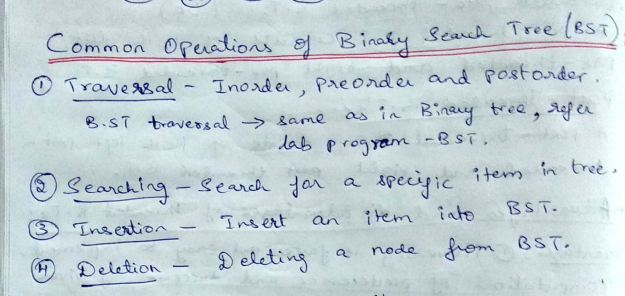 Common Operations of Binary Search Tree (BST)
① Traversal - Inorder, preorder and postorder.
B.ST traversal → same as in Binary tree, refer
lab program - BST.
② Searching - Search for a specific item in tree.
③ Insertion - Insert an item into BST.
④ Deletion - Deleting a node from BST.